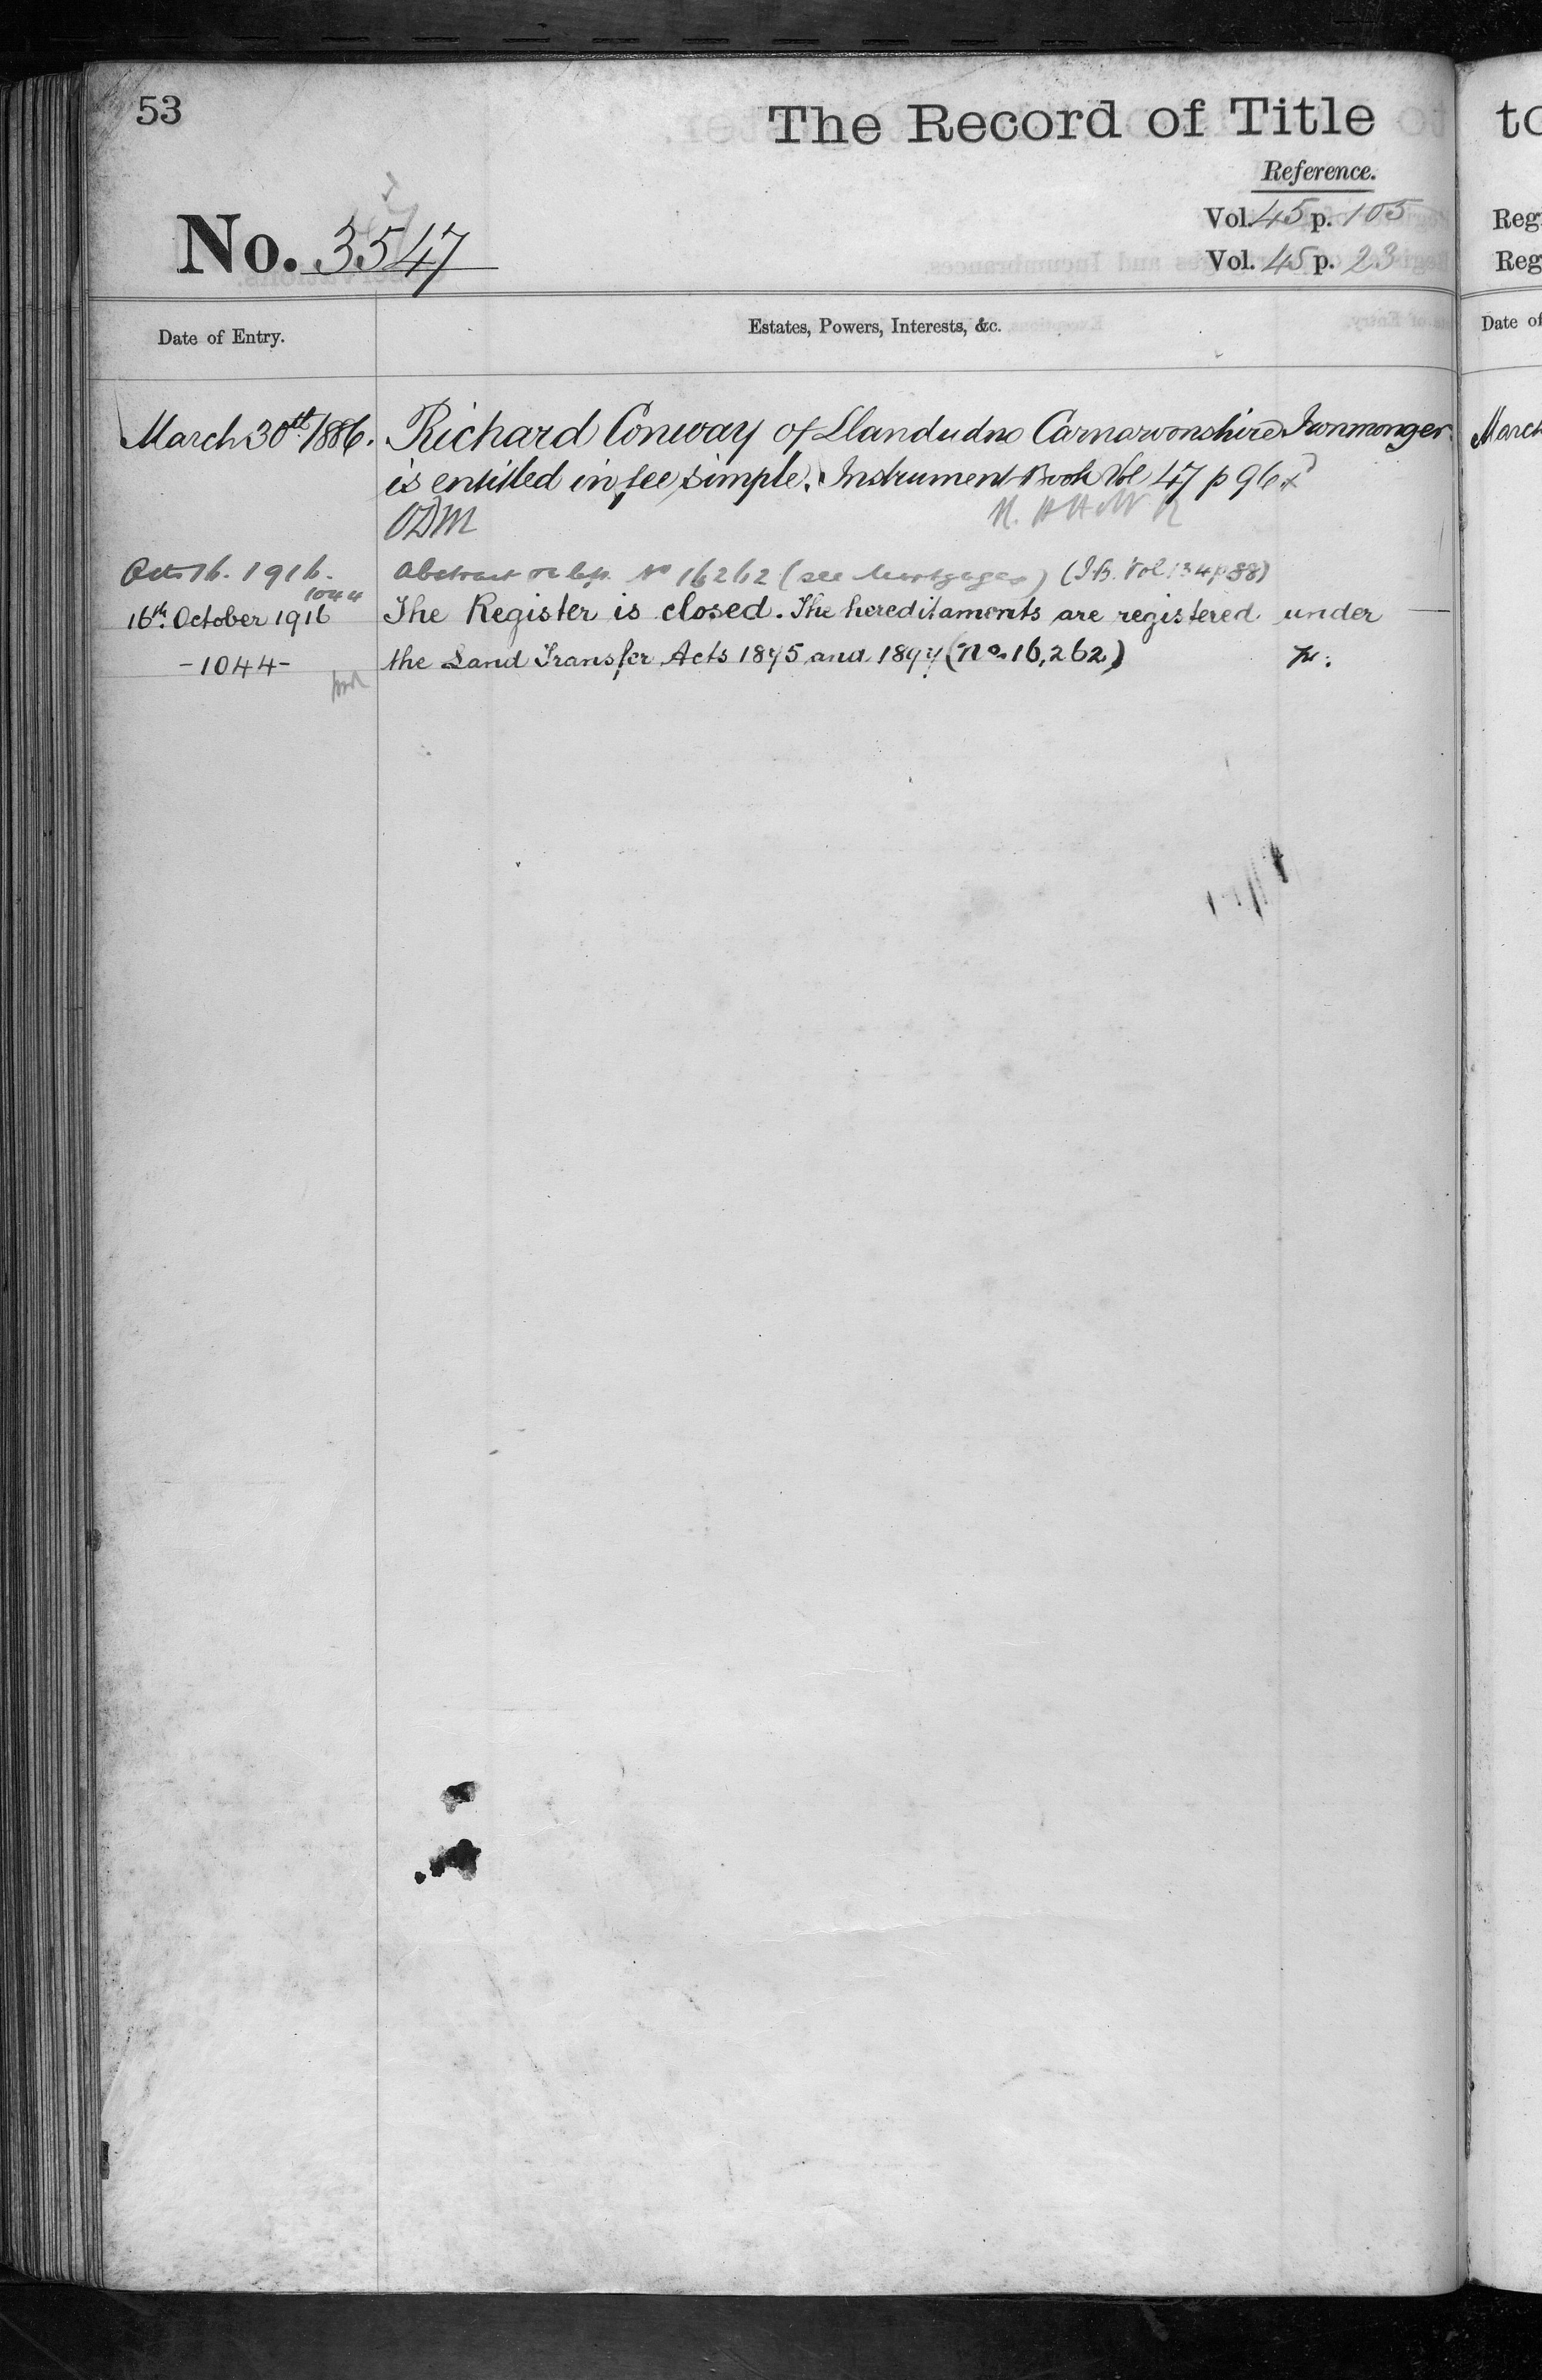 53
The Record of Title
Reference.
Vol. 45 p. 105
No. 3547
Vol. 45 p. 23
Date of Entry.
Estates, Powers, Interests, &c.
March 30th 1886. Richard Conway of Llandudno Carnarvonshire Ironmonger
is entitled in fee simple. Instrument Book Vol 47 p 96
ODM
Oct. 16. 1916. Abstract No 16262 (see Mortgages) (I.B. Vol 134 p 38)
1044
16th. October 1916 The Register is closed. The hereditaments are registered under
-1044- the Land Transfer Acts 1875 and 1897 (No. 16,262)
to
Reg
Reg
Date of
March